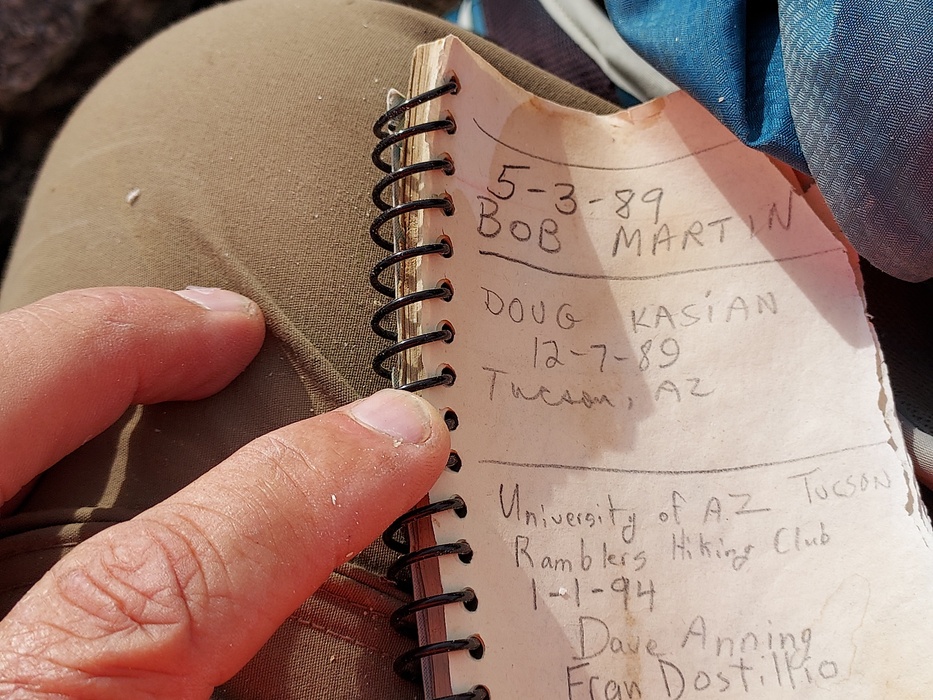 5-3-89
BOB MARTIN
DOUG KASiAN
12-7-89
Tucson, AZ
University of A.Z TUCSON
Ramblers Hiking Club
1-1-94
Dave Anning
Fran Dostillio